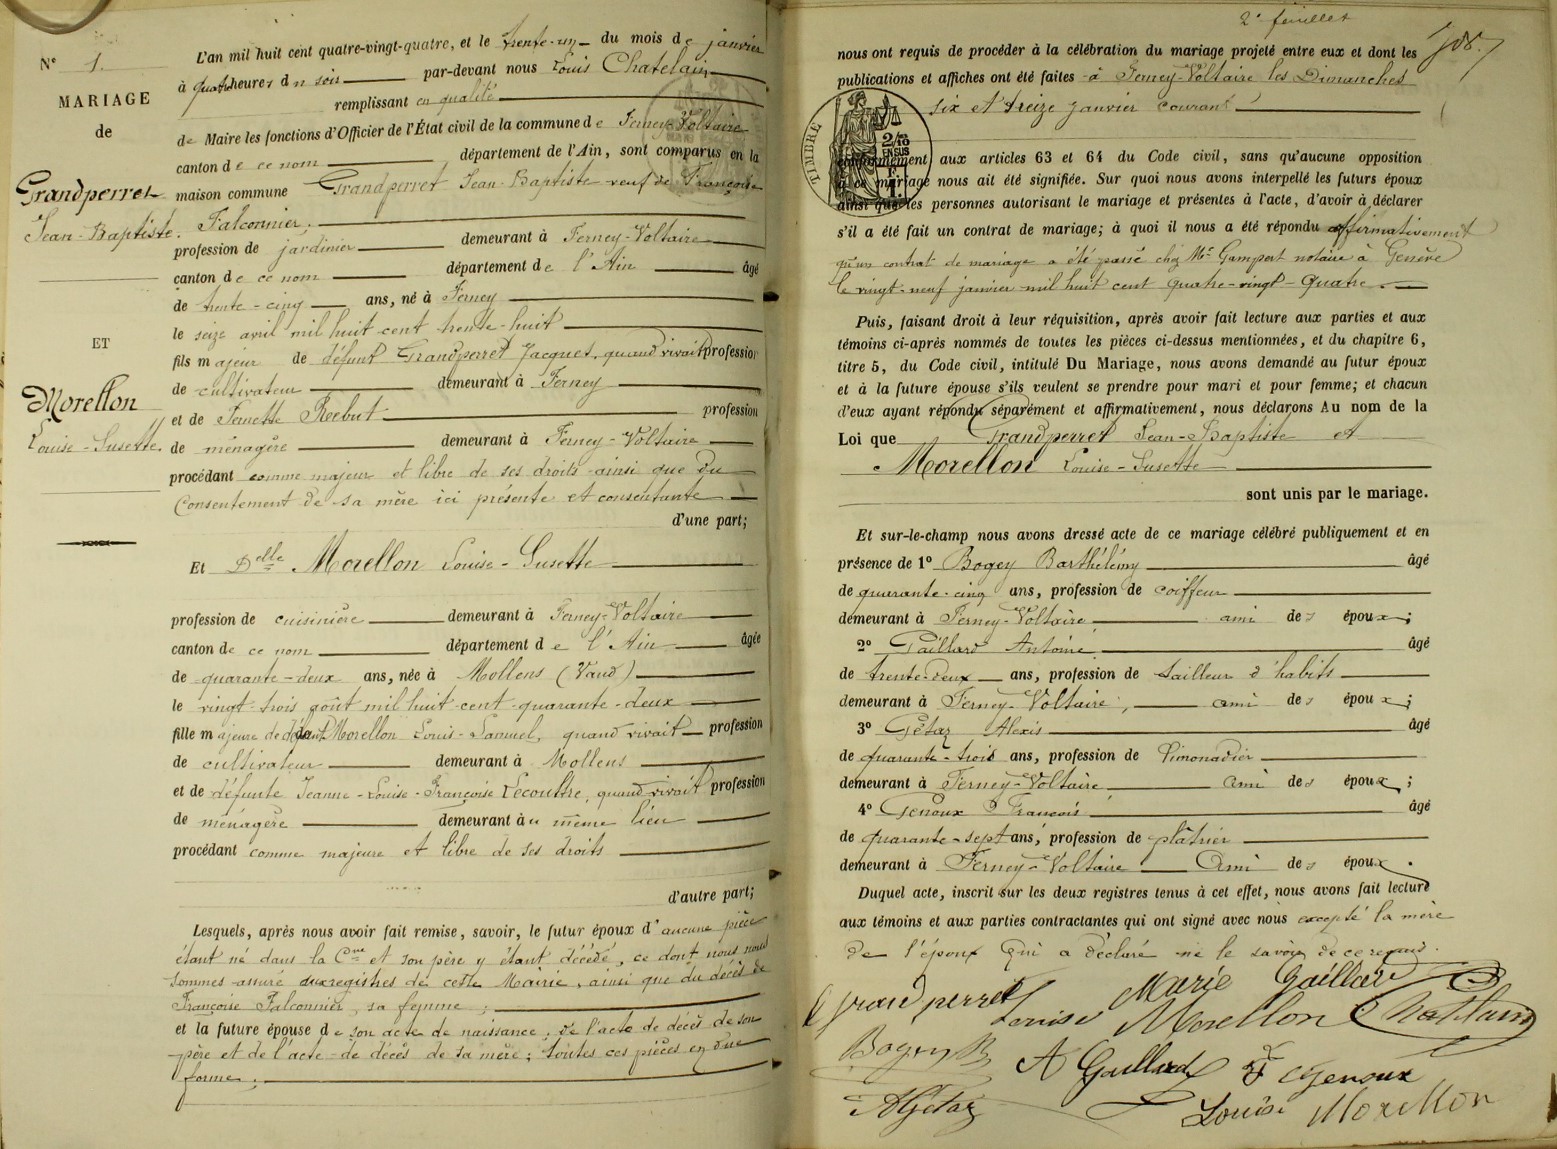 N° 1.
MARIAGE
de
Grandperret
Jean-Baptiste.
ET
Morellon
Louise-Susette.
L'an mil huit cent quatre-vingt-quatre, et le trente-un du mois de janvier
à quatre heures du soir par-devant nous Louis Chatelain
remplissant en qualité
de Maire les fonctions d'Officier de l'État civil de la commune de Ferney-Voltaire
canton de ce nom département de l'Ain, sont comparus en la
maison commune Grandperret Jean-Baptiste veuf de Françoise
Falconnier.
profession de jardinier demeurant à Ferney-Voltaire
canton de ce nom département de l'Ain âgé
de trente-cinq ans, né à Ferney
le seize avril mil huit cent trente-huit
fils majeur de défunt Grandperret Jacques, quand vivait profession
de cultivateur demeurant à Ferney
et de Fernette Rebut profession
de ménagère demeurant à Ferney-Voltaire
procédant comme majeur et libre de ses droits ainsi que du
Consentement de sa mère ici présente et consentante
d'une part;
Et Delle Morellon Louise-Susette
profession de cuisinière demeurant à Ferney-Voltaire
canton de ce nom département de l'Ain âgée
de quarante-deux ans, née à Mollens (Vaud)
le vingt trois août mil huit cent quarante-deux
fille majeure de défunt Morellon Louis-Samuel, quand vivait profession
de cultivateur demeurant à Mollens
et de défunte Jeanne-Louise-Françoise Lecoultre, quand vivait profession
de ménagère demeurant au même lieu
procédant comme majeure et libre de ses droits
d'autre part;
Lesquels, après nous avoir fait remise, savoir, le futur époux d'aucune pièce
étant né dans la Cne et son père y étant décédé, ce dont nous nous
sommes assuré aux registres de cette Mairie, ainsi que du décès de
Françoise Falconnier, sa femme;
et la future épouse de son acte de naissance, de l'acte de décès de son
père et de l'acte de décès de sa mère; toutes ces pièces en due
forme.
2e feuillet
nous ont requis de procéder à la célébration du mariage projeté entre eux et dont les
publications et affiches ont été faites à Ferney-Voltaire les Dimanches
six et treize janvier courant
TIMBRE
2/10
EN SUS
conformément aux articles 63 et 64 du Code civil, sans qu'aucune opposition
à ce mariage nous ait été signifiée. Sur quoi nous avons interpellé les futurs époux
ainsi que les personnes autorisant le mariage et présentes à l'acte, d'avoir à déclarer
s'il a été fait un contrat de mariage; à quoi il nous a été répondu affirmativement
qu'un contrat de mariage a été passé chez Me Gampert notaire à Genève
le vingt-neuf janvier mil huit cent quatre-vingt-quatre.
Puis, faisant droit à leur réquisition, après avoir fait lecture aux parties et aux
témoins ci-après nommés de toutes les pièces ci-dessus mentionnées, et du chapitre 6,
titre 5, du Code civil, intitulé Du Mariage, nous avons demandé au futur époux
et à la future épouse s'ils veulent se prendre pour mari et pour femme; et chacun
d'eux ayant répondu séparément et affirmativement, nous déclarons Au nom de la
Loi que Grandperret Jean-Baptiste et
Morellon Louise-Susette
sont unis par le mariage.
Et sur-le-champ nous avons dressé acte de ce mariage célébré publiquement et en
présence de 1° Bogey Barthélémy âgé
de quarante-cinq ans, profession de coiffeur
demeurant à Ferney-Voltaire ami des époux;
2° Gaillard Antoine âgé
de trente-deux ans, profession de tailleur d'habits
demeurant à Ferney-Voltaire, ami des époux;
3° Gétaz Alexis âgé
de quarante-trois ans, profession de limonadier
demeurant à Ferney-Voltaire ami des époux;
4° Genoux François âgé
de quarante-sept ans, profession de plâtrier
demeurant à Ferney-Voltaire Ami des époux.
Duquel acte, inscrit sur les deux registres tenus à cet effet, nous avons fait lecture
aux témoins et aux parties contractantes qui ont signé avec nous excepté la mère
de l'époux qui a déclaré ne le savoir de ce requis.
Grandperret Marie Gaillard
Louise Morellon Chatelain
Bogey B A Gaillard F Genoux
A Gétaz Louise Morellon